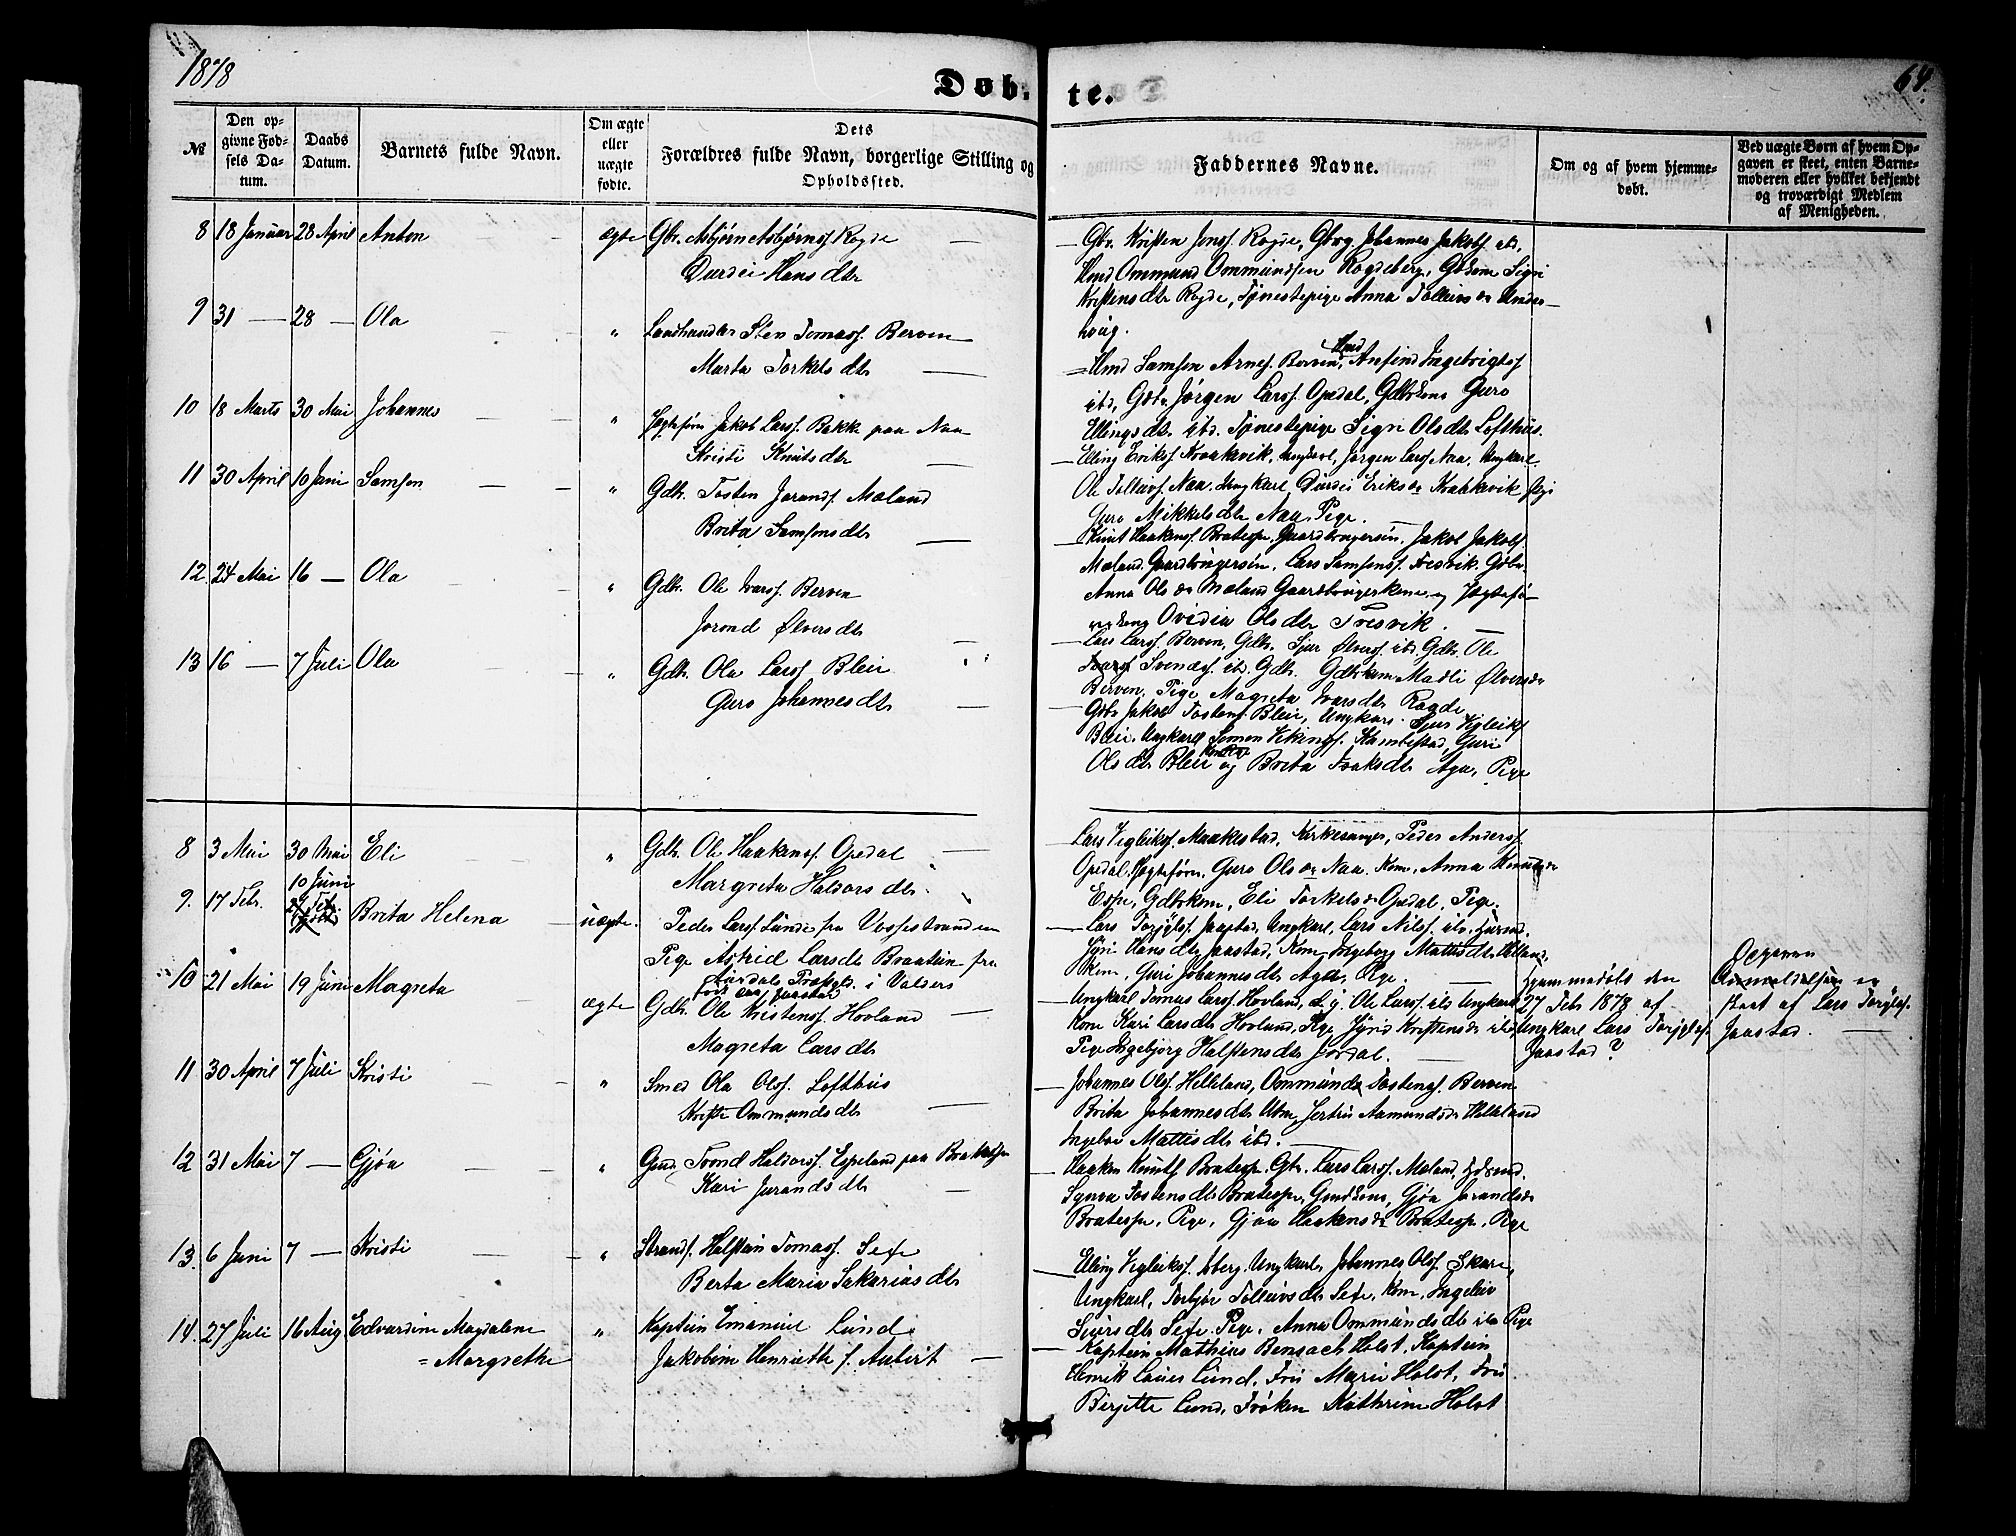 1878
Døb-
te.
64.
№
Den op-
givne Fød-
sels Da-
tum.
Daabs
Datum.
Barnets fulde Navn.
Om ægte
eller
uægte
fødte.
Dets
Forældres fulde Navn, borgerlige Stilling og
Opholdssted.
Faddernes Navne.
Om og af hvem hjemme-
døbt.
Ved uægte Børn af hvem Op-
gaven er skeet, enten Barne-
moderen eller hvilket bekjendt
og troværdigt Medlem
af Menigheden.
8 18 Januar 28 April Anton ægte Gbr. Asbjørn Asbjørnss. Rogde
Durdei Hansdtr
Gbr. Kristen Jonss. Rogde, Johannes Jakobs. ibd,
Hmd Ommund Ommundsen Rogdeberg, Sigri
Kristensdtr Rogde, Tjenestepige Anna Tolleivsdr
9 31 — 28 — Ola " Landhandler Sten Tomass. Berven
Marta Torkelsdtr
Hmd Samson Arnes. Berven, Hmd Anfind Ingebrigts.
ibd, Gbr. Jørgen Larss. Opedal, Guro
Ellingsdtr ibd. Tjenestepige Sigri Olsdtr Lofthus.
10 18 Marts 30 Mai Johannes " Jagtefører Jakob Larss. Bakke paa Naa
Kristi Knutsdtr
Elling Eriks. Kraakvik, Ungkarl, Jørgen Larss. Naa, Ungkarl
Ole Tolleivs. Naa, Ungkarl, Durdei Eriksdr Kraakevik, Pige
Guro Mikkelsdtr Naa, Pige.
11 30 April 10 Juni Samson " Gdbr. Tosten Jorands. Mæland
Brita Samsonsdtr
Knut Haakens. Bratespe, Gaardbrugersøn, Jakob Jakobs.
Mæland Gaardbrugersøn, Lars Samsonss. Tresvik, Gdbr.
Anna Olsdr Mæland Gaardbrugerkone og Jagtefø-
Ovidia Olsdtr Tresvik.
12 24 Mai 16 — Ola " Gdbr. Ole Ivarss. Berven
Jorond Ølversdtr
Lars Larss. Berven, Gdbr. Sjur Ølverss. ibd. Gdbr. Ole
Svends. ibd. Gdbr. Gdbrkone Madli Ølversdr
Berven, Pige Magreta Ivarsdtr Rogde
13 16 — 7 Juli Ola " Gdbr. Ola Larss. Bleie
Guro Johannesdtr
Gdbr Jakob Tostens. Bleie, Ungkarl Sjur Vigleiks.
Bleie, Ungkarl Simon Vikings. Kambestad, Guri
Olsdtr Bleie og Brita Isaksdtr Aga, Pige
8 3 Mai 30 Mai Eli " Gdbr. Ole Haakens. Opedal
Margreta Haldorsdtr
Lars Vigleiks. Maakestad, Kirkesanger, Peder Anderss.
Opedal, Jagtefører, Guro Olsdr Naa, Kone, Anna Knutsdr
Espe, Gdbrkone, Eli Torkelsdr Opedal, Pige.
9. 17 Febr. 10 Juni Brita Helena uægte. Peder Larss. Lunde fra Vossestranden
Pige Astrid Larsdtr Braaten fra
Aurdals Præstegld. i Valders
Lars Torjyls. Jaastad, Ungkarl, Lars Nilss. ibd,
Jyri Hansdtr Jaastad, Kone Ingeborg Mattisdtr Helland,
Kone, Guri Johannesdtr Aga, Pige.
Hjemmedøbt den
27 Febr 1878 af
Ungkarl Lars Torjyls.
Jaastad?
Opgaven
er
skeet af Lars Torjyls.
Jaastad.
10 21 Mai 19 Juni Magreta ægte Gdbr. Ole Kristens. Hovland
Magreta Larsdtr
Ungkarl Tomas Larss. Hovland, Ole Larss. ibd Ungkarl
Kone Kari Larsdtr Hovland, Pige Jyrid Kristensdr ibd
Pige Ingebjørg Halstensdtr Jordal.
11 30 April 7 Juli Kristi " Smed Ola Olss. Lofthus
Kristi Ommundsdtr
Johannes Olss. Helleland, Ommund Tostengs. Berven
Brita Johannesdtr Utne, Jertru Aamundsdr Helleland
Ingebor Mattisdtr ibd.
12 31 Mai 7 — Gjøa " Trond Haldorss. Espeland paa Bratespe
Kari Jorandsdtr
Haaken Knuts. Bratespe, Gbr. Lars Larss. Mæland,
Synva Tostensdtr Bratespe, Gjøa Jorandsdr
Bratespe, Pige, Gjøa Haakensdr Bratespe, Pige
13. 6 Juni 7 — Kristi " Strands. Halstein Tomass. Sexe
Berta Maria Sakariasdtr
Elling Vigleikss. Aberg, Ungkarl, Johannes Olss. Skare,
Ungkarl, Torbjør Tolleivsdtr Sexe, Kone, Ingeleiv
Siversdtr Sexe, Pige, Anna Ommundsdtr ibd Pige
14. 27 Juli 16 Aug Edvardine Magdalene
= Margrethe " Kaptein Emanuel Lund
Jakobine Henriette f. Aubert
Kaptein Mathias Bonsach Holst, Kaptein
Henrik Laurs Lund, Fru Marie Holst, Fru
Birgitte Lund, Frøken Kathrine Holst